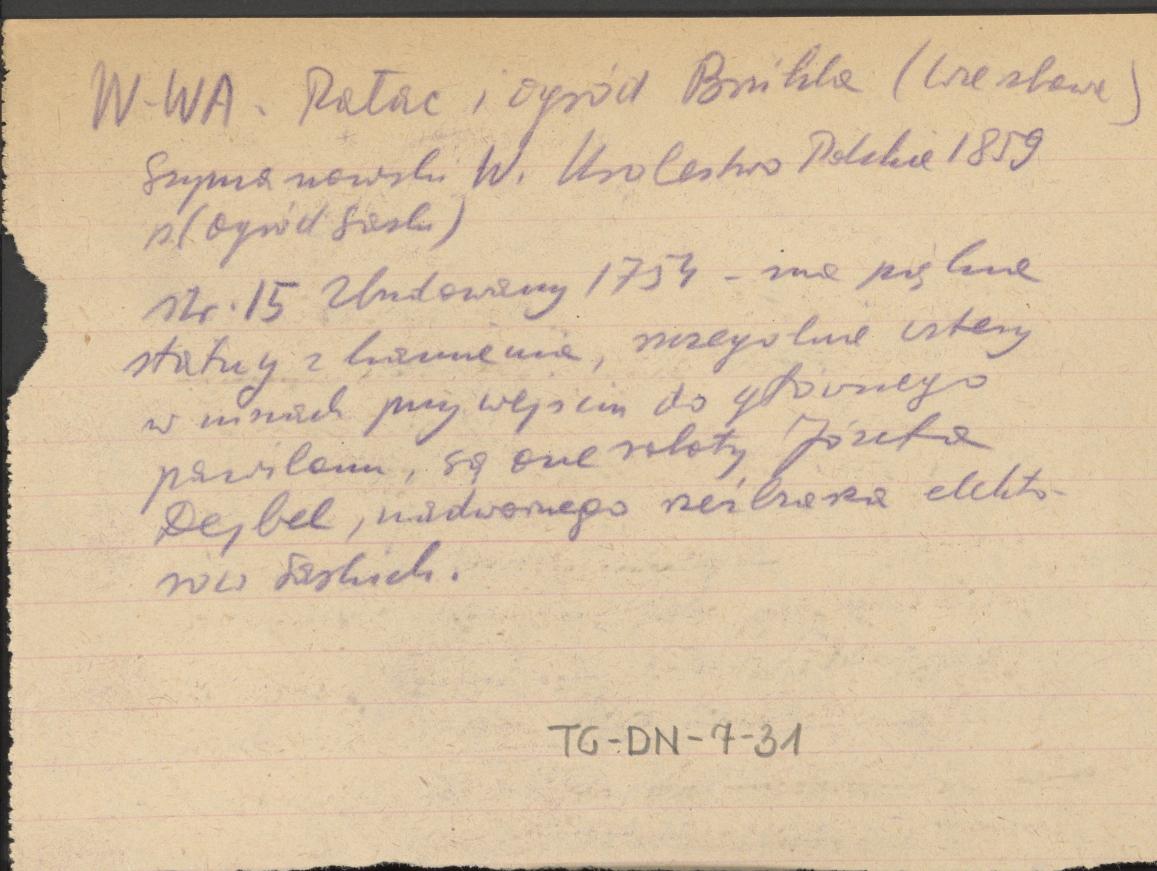 W-WA. Pałac i ogród Brühla (Wierzbowa)
Szymanowski W. Królestwo Polskie 1859
r. (Ogród Saski)
str. 15 Zbudowany 1754 - ma piękne
statuy z kamienia, szczególnie cztery
w niszach przy wejściu do głównego
pawilonu, są one roboty Józefa
Dejbel, nadwornego rzeźbiarza elekto-
rów saskich.
TG-DN-7-31